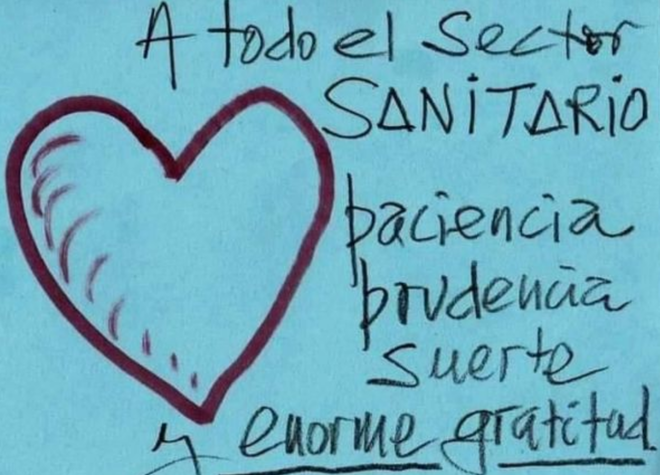 A todo el sector
SANiTARiO
paciencia
prudencia
suerte
y enorme gratitud